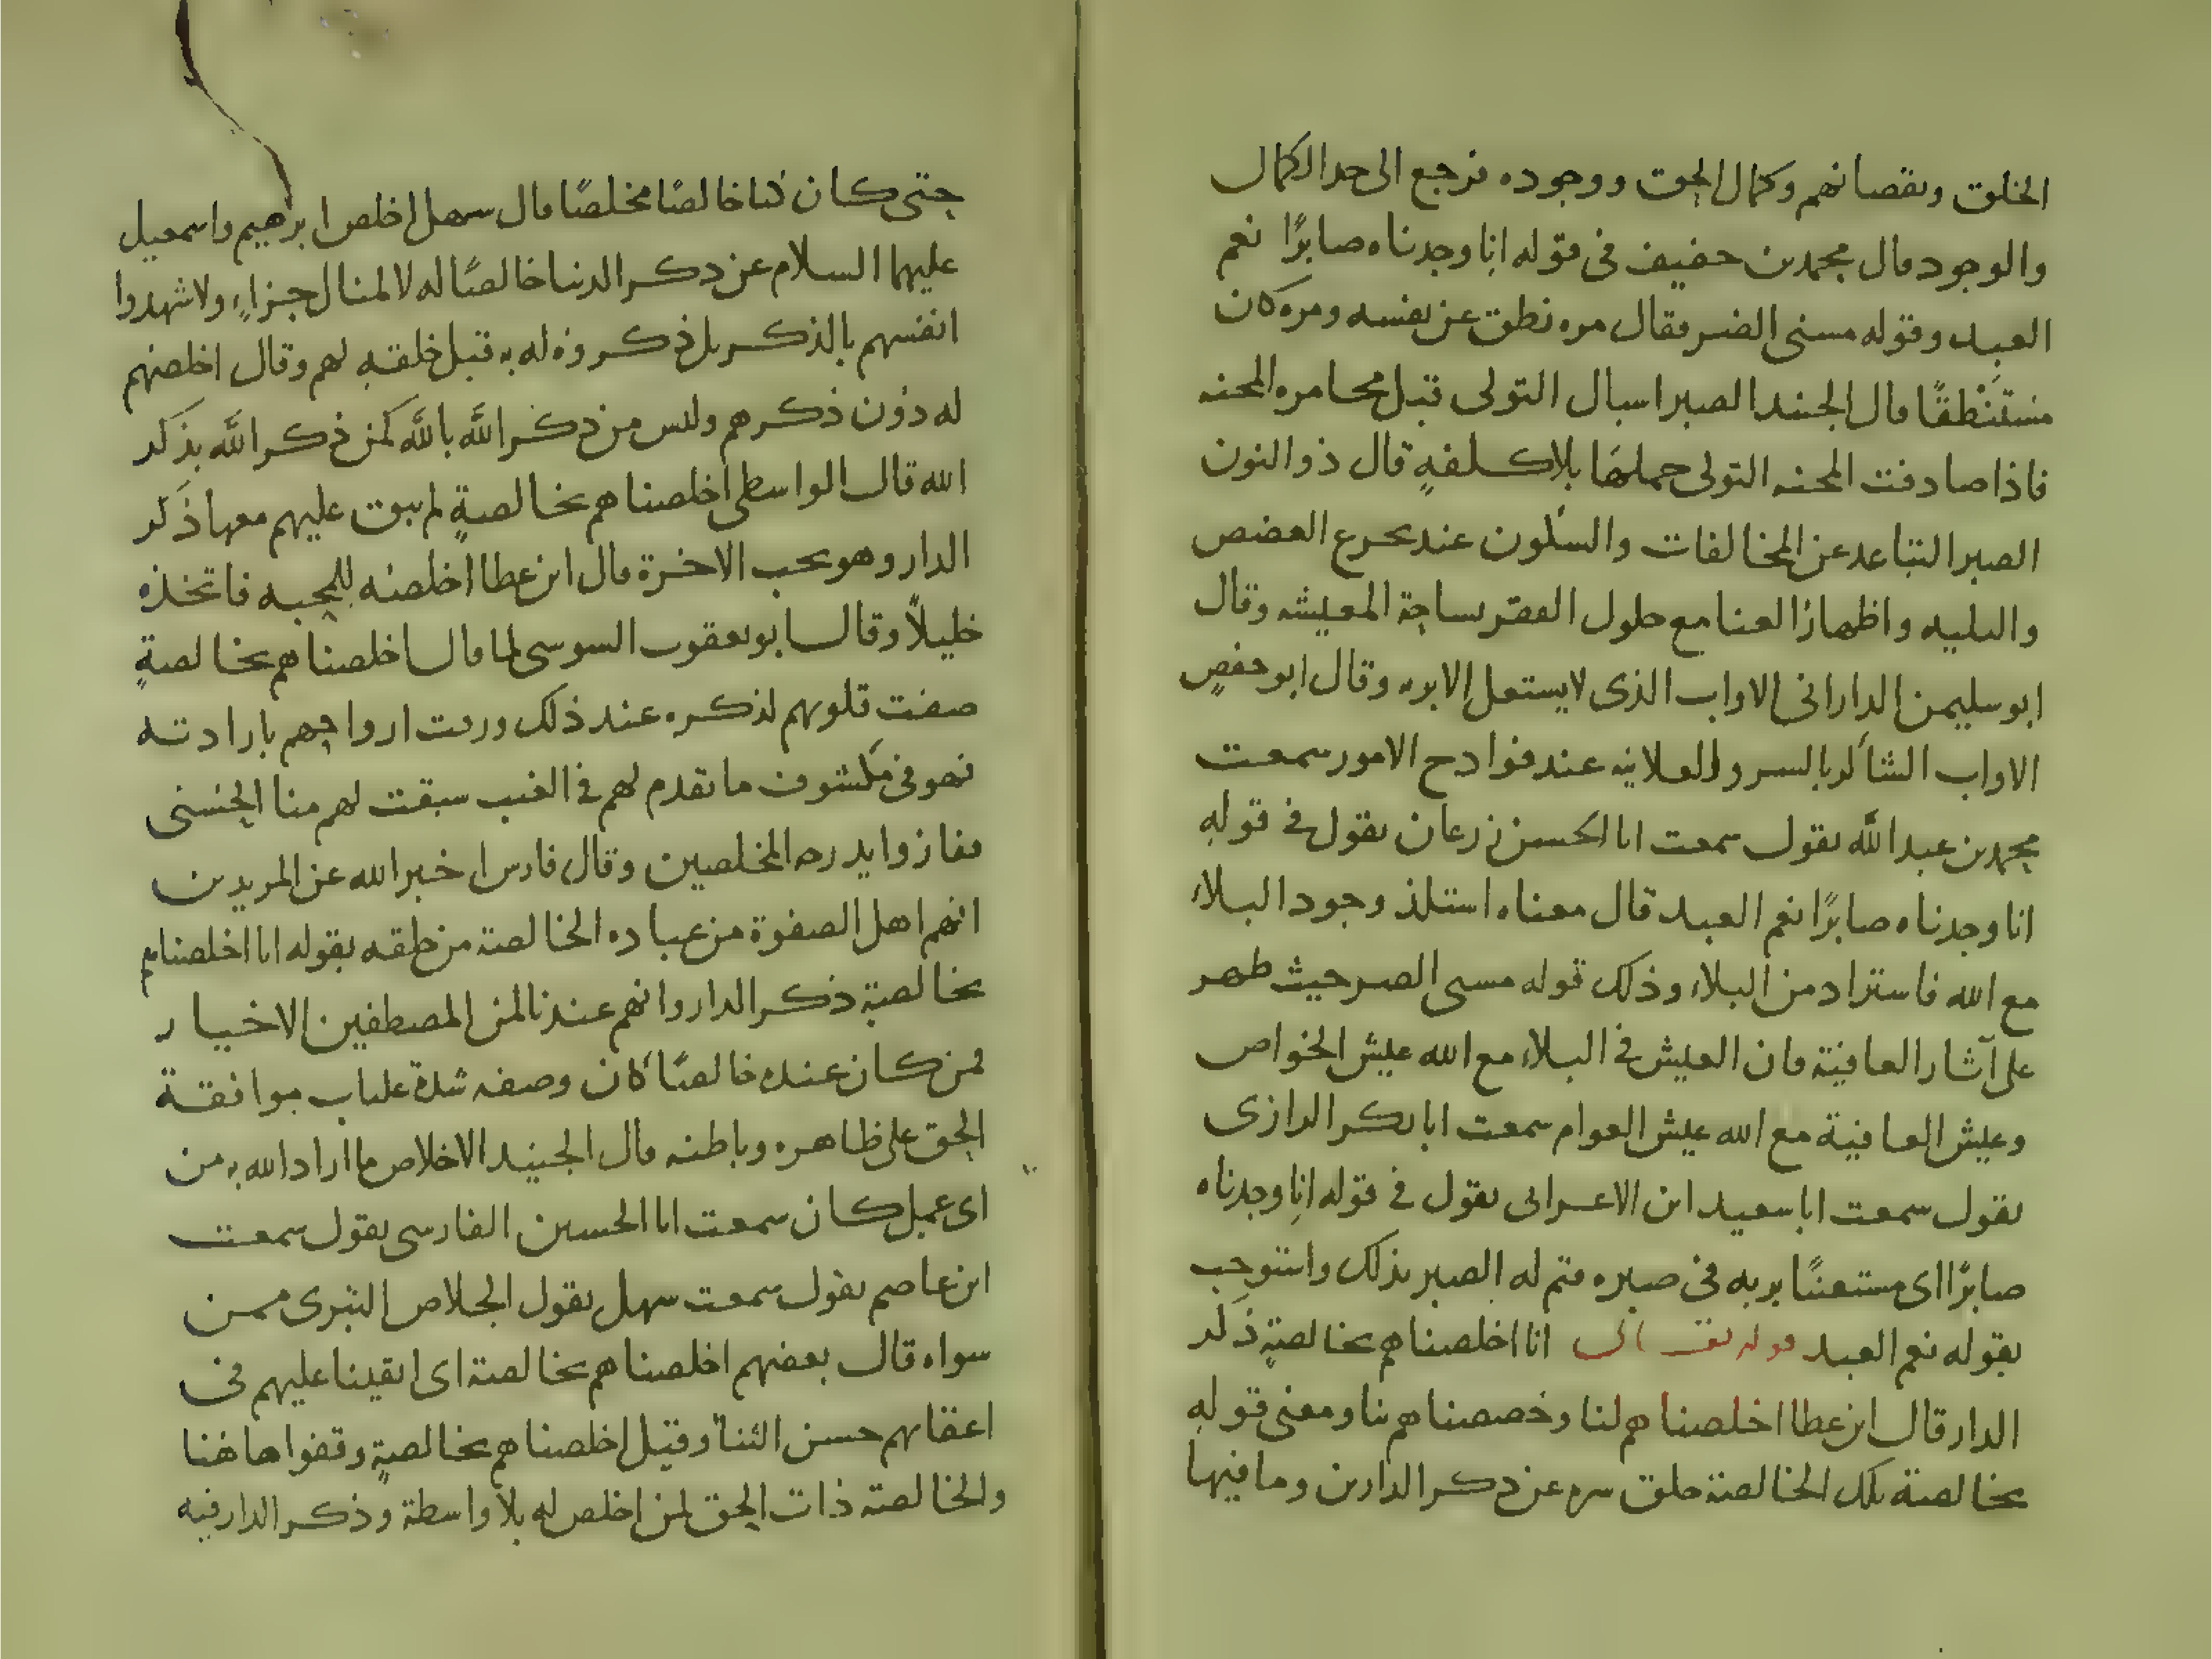 الخلق ونقصانهم وكمال الحق ووجوده فرجع الى حد الكمال
والوجود قال محمد بن خفيف فى قوله انا وجدناه صابرًا نعم
العبد وقوله مسنى الضر فقال مره نطق عن نفسه ومره كان
مستنطقًا قال الجنيد الصبر اسبال التولى قبل مخامره المحنه
فاذا صادفت المحنه التولى حملها بلا كلفةٍ قال ذو النون
الصبر التباعد عن المخالفات والسكون عند تجرع الغصص
والبليه واظهار الغنا مع حلول الفقر بساحة المعيشه وقال
ابو سليمن الدارانى الاواب الذى لا يستعمل الا بربه وقال ابو حفصٍ
الاواب الشاكر بالسر والعلانيه عند فوادح الامور سمعت
محمد بن عبد الله يقول سمعت ابا الحسن بن زرعان يقول فى قوله
انا وجدناه صابرًا نعم العبد قال معناه استلذ وجود البلاء
مع الله فاستزاد من البلاء وذلك قوله مسنى الضر حيث ظهر
على آثار العافية فان العيش فى البلاء مع الله عيش الخواص
وعيش العافية مع الله عيش العوام سمعت ابا بكر الرازى
يقول سمعت ابا سعيد ابن الاعرابى يقول فى قوله انا وجدناه
صابرًا اى مستعينًا بربه فى صبره فتم له الصبر بذلك واستوجب
بقوله نعم العبد قوله تعالى انا اخلصناهم بخالصةٍ ذكر
الدار قال ابن عطا اخلصناهم لنا وخصصناهم بنا ومعنى قوله
بخالصة تلك الخالصة خلق سره عن ذكر الدارين وما فيها
حتى كان لنا خالصًا مخلصًا قال سهل اخلص ابرهيم واسمعيل
عليهما السلام عن ذكر الدنيا خالصًا له لا لمنال جزاءٍ ولا شهدوا
انفسهم بالذكر بل ذكروه له به قبل خلقه لهم وقال اخلصهم
له دون ذكرهم وليس من ذكر الله بالله كمن ذكر الله بذكر
الله قال الواسطى اخلصناهم بخالصةٍ لم يبق عليهم معها ذكر
الدار وهو يحب الاخرة قال ابن عطا اخلصته للمحبه فاتخذه
خليلاً وقال ابو يعقوب السوسى لما قال اخلصناهم بخالصةٍ
صفت قلوبهم لذكره عند ذلك ورقت ارواحهم بارادته
فهو فى مكشوف ما تقدم لهم فى الغيب سبقت لهم منا الحسنى
ففازوا بدرجه المخلصين وقال فارس اخبر الله عن المريدين
انهم اهل الصفوة من عباده الخالصة من خلقه بقوله انا اخلصناهم
بخالصةٍ ذكر الدار وانهم عندنا لمن المصطفين الاخيار
فمن كان عنده خالصًا كان وصفه شدة علباب موافقة
الحق على ظاهره وباطنه قال الجنيد الاخلاص ما اراد الله به من
اى عمل كان سمعت ابا الحسين الفارسى يقول سمعت
ابن عاصم يقول سمعت سهل يقول الخلاص التبرى ممن
سواه قال بعضهم اخلصناهم بخالصة اى ابقينا عليهم فى
اعقابهم حسن الثنا وقيل اخلصناهم بخالصةٍ وقفوا هاهنا
والخالصة ذات الحق لمن اخلص له بلا واسطة وذكر الدار فيه